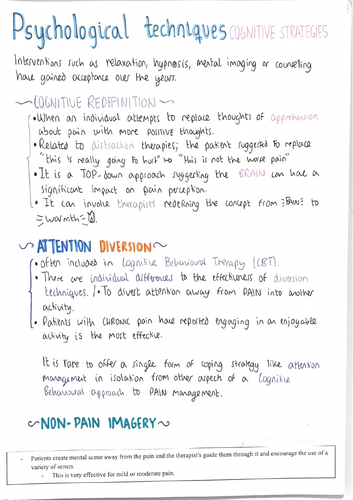 Psychological techniques COGNITIVE STRATEGIES
Interventions such as relaxation, hypnosis, mental imaging or counselling
have gained acceptance over the years.
~COGNITIVE REDEFINITION~
• When an individual attempts to replace thoughts of apprehension
about pain with more POSITIVE thoughts.
• Related to distraction therapies; the patient suggested to replace
"this is really going to hurt" to "this is not the worse pain"
• It is a TOP-down approach suggesting the BRAIN can had a
significant impact on pain perception.
• It can involve therapists redefining the concept from BURN to
warmth
~ATTENTION DIVERSION~
• Often included in Cognitive Behavioural Therapy (CBT).
• There are individual differences to the effectiveness of diversion
techniques. /• To divert attention away from PAIN into another
activity.
• Patients with CHRONIC pain have reported engaging in an enjoyable
activity is the most effective.
It is rare to offer a single form of coping strategy like attention
management in isolation from other aspect of a Cognitive
Behavioural approach to PAIN management.
~NON-PAIN IMAGERY~
- Patients create mental scene away from the pain and the therapist's guide them through it and encourage the use of a
variety of senses.
- This is very effective for mild or moderate pain.